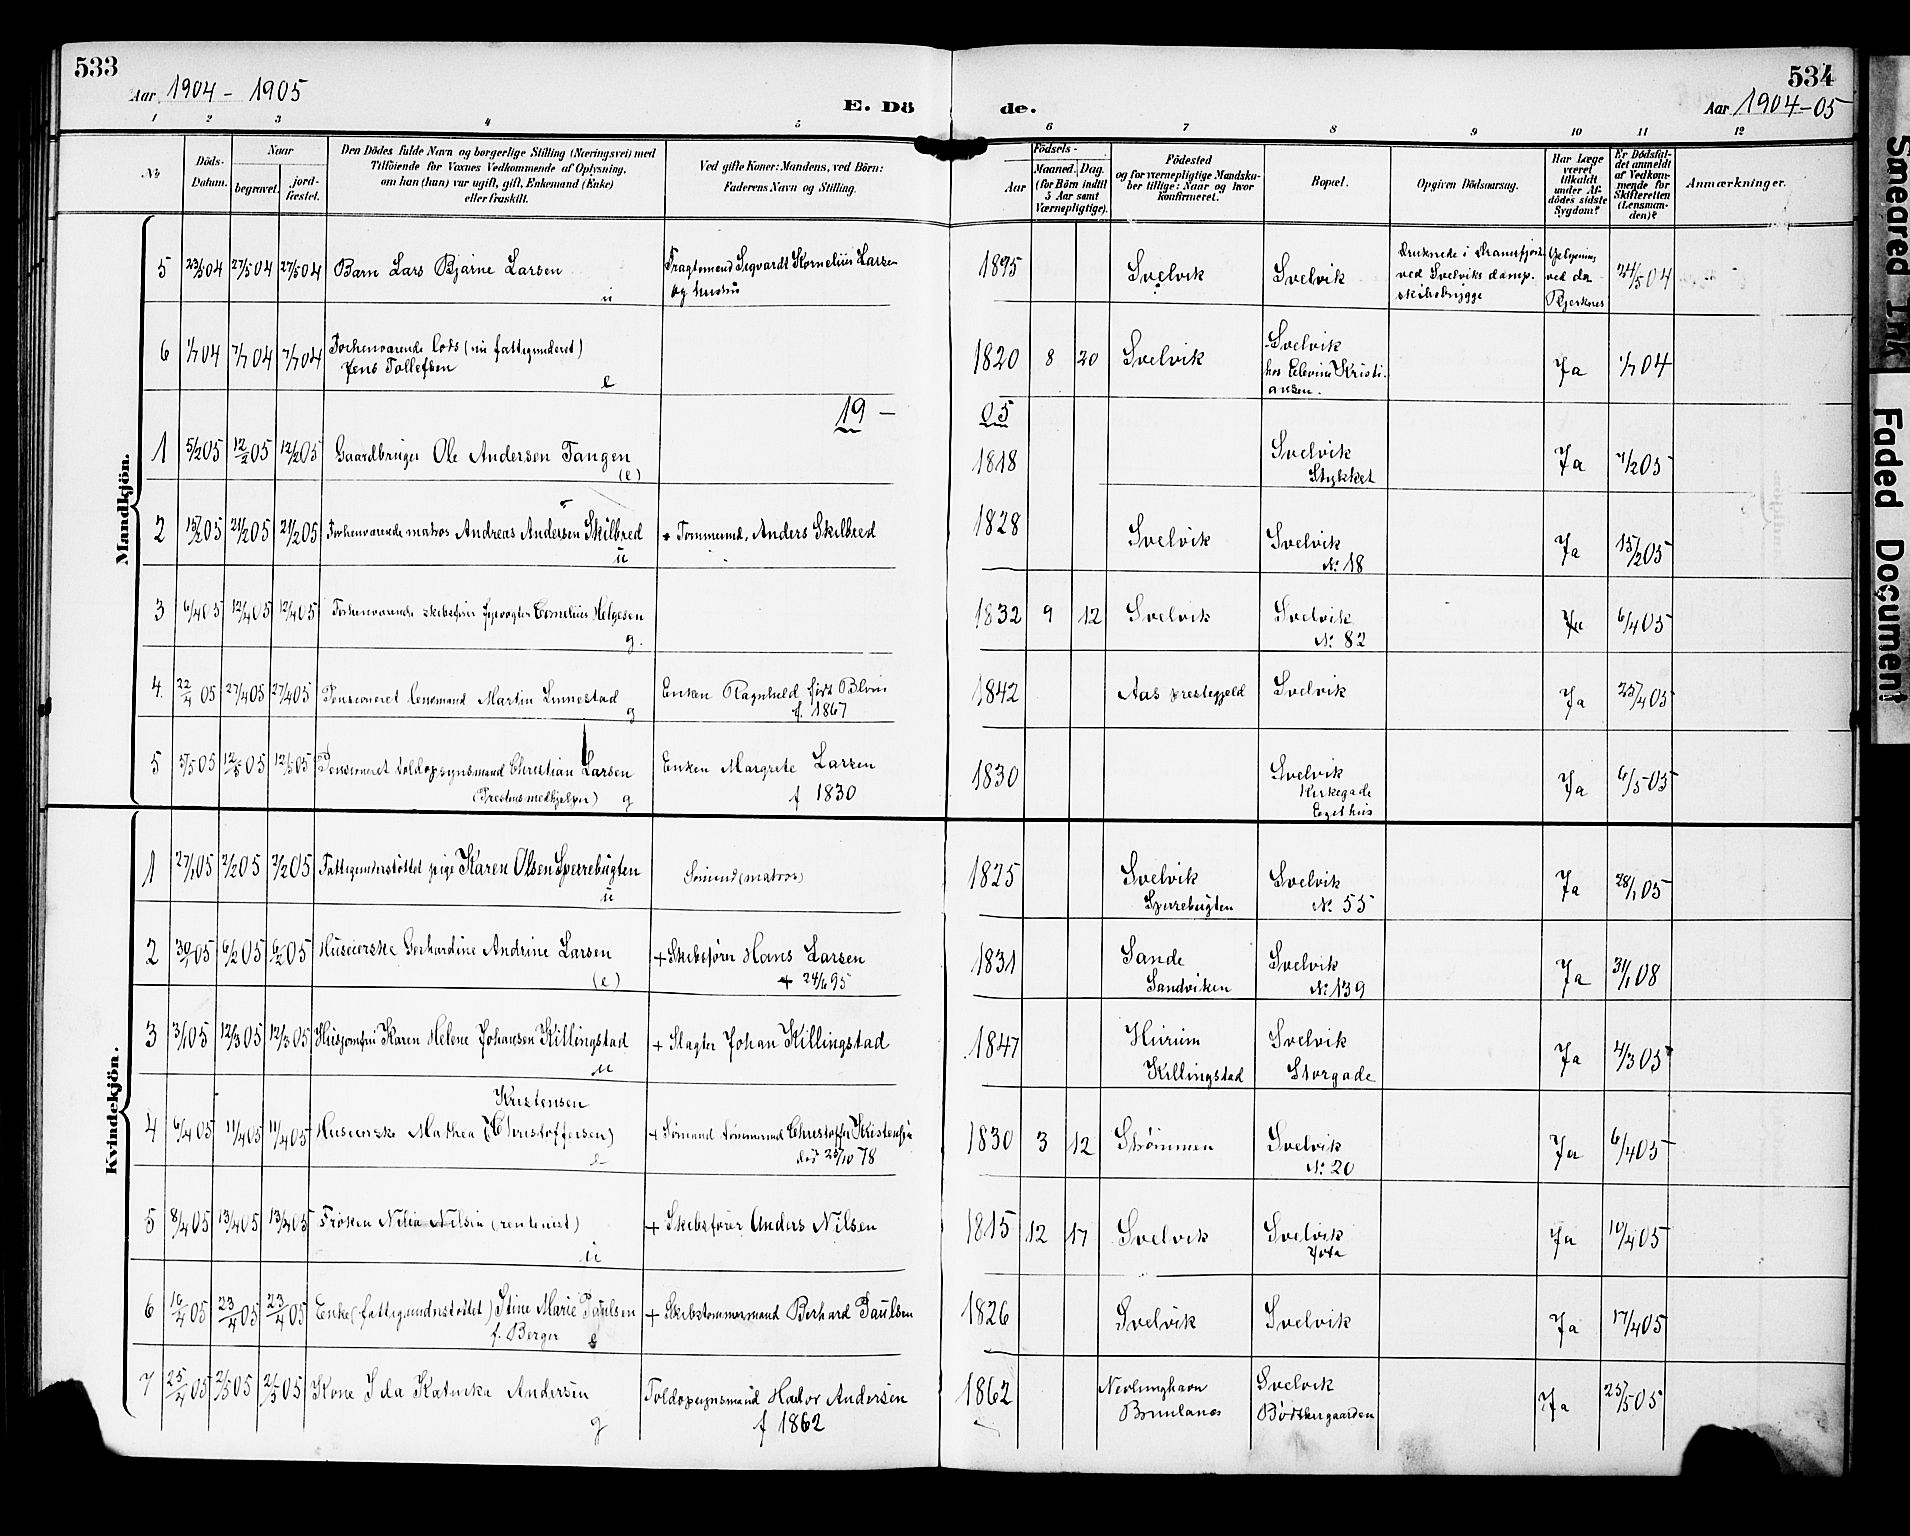 533
Aar 1904 - 1905
E. Dö
de.
534
Aar 1904-05
1 2 3 4 5 6 7 8 9 10 11 12
No.
Döds-
Datum.
Naar
begravet.
jord-
fæstet.
Den Dödes fulde Navn og borgerlige Stilling (Næringsvei) med
Tilföiende for Voxnes Vedkommende af Oplysning,
om han (hun) var ugift, gift, Enkemand (Enke)
eller fraskilt.
Ved gifte Koner: Mandens, ved Börn:
Faderens Navn og Stilling.
Födsels-
Aar
Maaned. Dag.
(for Börn indtil
5 Aar samt
Værnepligtige).
Födested
og for værnepligtige Mandska-
ber tillige: Naar og hvor
konfirmeret.
Bopæl.
Opgiven Dödsaarsag.
Har Læge
været
tilkaldt
under Af-
dödes sidste
Sygdom?
Er Dödsfal-
det anmeldt
af Vedkom-
mende for
Skifteretten
(Lensman-
den)?
Anmærkninger.
Mandkjön.
5 23/5 04 27/5 04 27/5 04 Barn Lars Bjarne Larsen u
Fragtemand Sigvardt Kornelius Larsen
og hustru
1895 Svelvik Svelvik
Druknede i Dramsfjord
ved Svelviks damp-
skibsbrygge
ved dr
Bjerknes
24/5 04
6 1/7 04 7/7 04 7/7 04 Forhenværende lods (nu fattigunderst)
Jens Tollefsen e
1820 8 20 Svelvik Svelvik
hos Elevine Kristi-
ansen.
Ja 1/7 04
19 — 05
1 5/2 05 12/2 05 12/2 05 Gaardbruger Ole Andersen Tangen
(e)
1818 Svelvik
Stykket
Ja 7/2 05
2 15/2 05 21/2 05 21/2 05 Forhenværende matros Andreas Andersen Skilbred
u
Tømmermd. Anders Skilbred
1828 Svelvik Svelvik
No. 18
Ja 15/2 05
3 6/4 05 12/4 05 12/4 05 Forhenværende skibsfører fyrvogter Cornelius Helgesen
g.
1832 9 12 Svelvik Svelvik
No. 82
Ja 6/4 05
4. 22/4 05 27/4 05 27/4 05 Pensioneret lensmand Martin Linnestad
g
Enken Ragnhild født
f. 1867
1842 Aas prestegjeld Svelvik Ja 25/4 05
5 5/5 05 12/5 05 12/5 05 Pensioneret toldopsynsmand Christian Larsen
(Prestens medhjelper) g
Enken Margrete Larsen
f 1830
1830 Svelvik
Kirkegade
Eget hus
Ja 6/5 05
Kvindekjön.
1 27/1 05 2/2 05 2/2 05 Fattigunderstøttet pige Karen Olsen Sperrebugten
u
Sømand (matros)
1825 Svelvik
Sperrebugten
Svelvik
No. 55
Ja 28/1 05
2 30/1 05 6/2 05 6/2 05 Huseierske Gerhardine Andrine Larsen
(e)
+ Skibsfører Hans Larsen
+ 24/6 95
1831 Sande
Sandviken
Svelvik
No. 139
Ja 31/1 08
3 3/3 05 12/3 05 12/3 05 Husjomfru Karen Helene Johansen Killingstad
u
+ Slagter Johan Killingstad
1847 Hurum
Killingstad
Svelvik
Storgade
Ja 4/3 05
Kristensen
4 6/4 05 11/4 05 11/4 05 Huseierske Mathea (Christoffersen)
e
+ Sømand tømmermd Christoffer Kristensen
død 25/10 78
1830 3 12 Strømmen Svelvik
No. 20
Ja 6/4 05
5 8/4 05 13/4 05 13/4 05 Frøken Nilia Nilsen (rentenist)
u
+ Skibsfører Anders Nilsen
1815 12 17 Svelvik Svelvik
Ja 10/4 05
6 16/4 05 23/4 05 23/4 05 Enke (fattigunderstøttet) Stine Marie Paulsen
f. Berger e
+ Skibstømmermand Berhard Paulsen
1826 Svelvik Svelvik Ja 17/4 05
7 25/4 05 2/5 05 2/5 05 Kone Ida Katinka Andersen
g
Toldopsynsmand Hador Andersen
f 1862
1862 Nevlunghavn
Brunlanes
Svelvik
Bødkergaarden
Ja 25/5 05
Smeared Ink
Faded Document